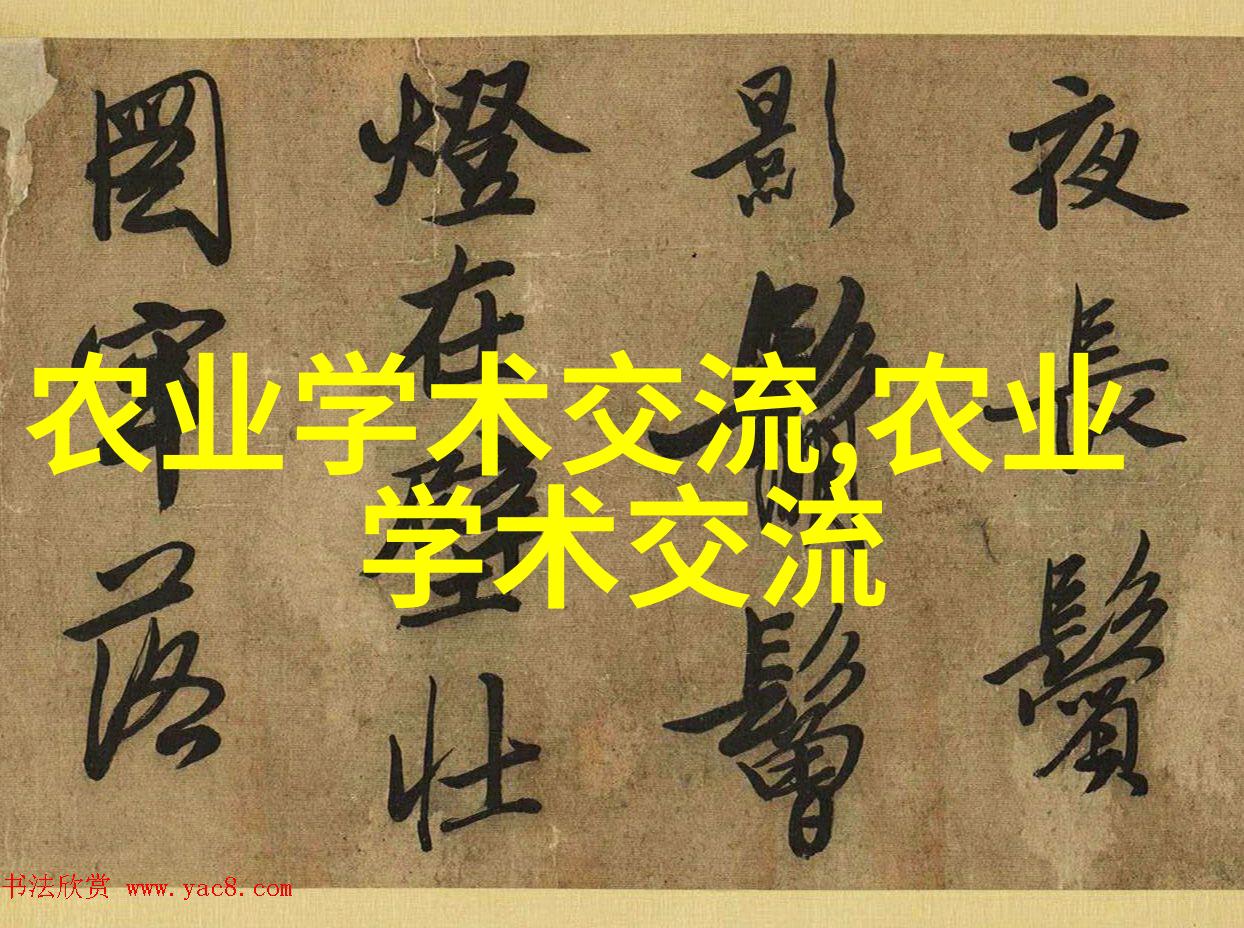 夜長鬢
影鬅鬙
燈在壁壯
圖牢落
农业学术交流,农业
学术交流
书法欣赏 www.yac8.com